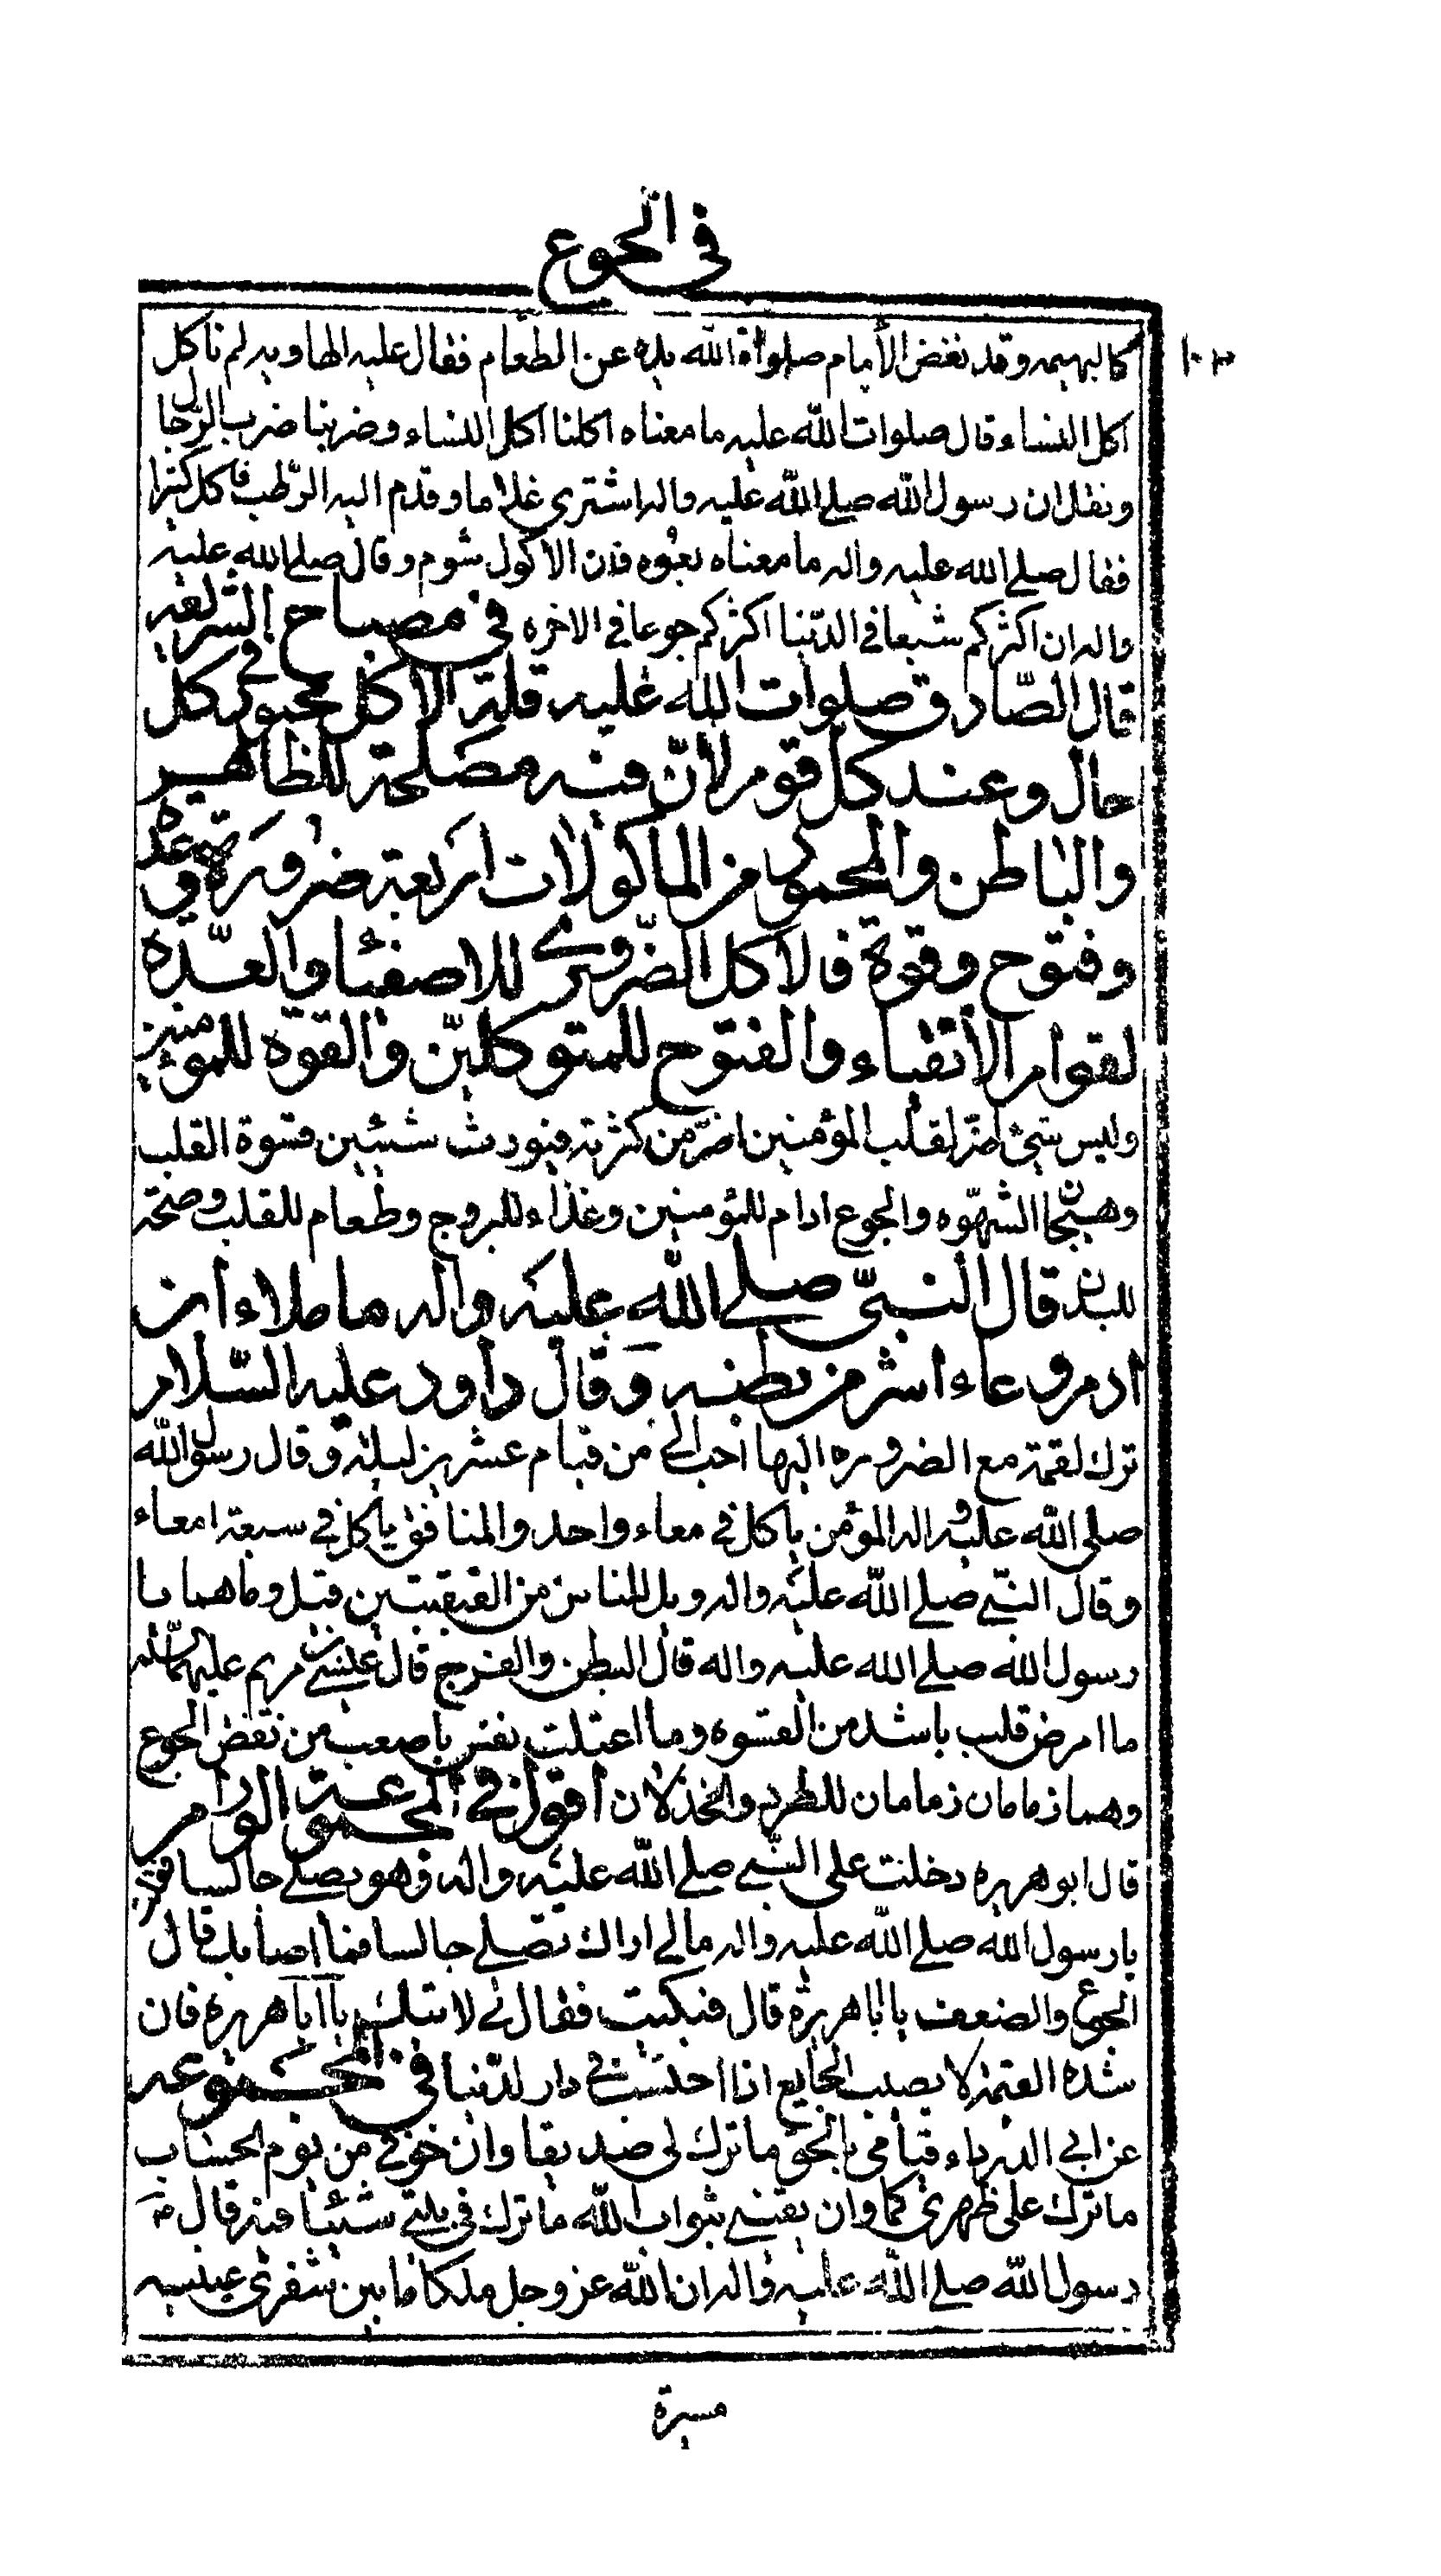 في الجوع
١٠٣
كالبهيمه وقد نفض الأمام صلواة الله يده عن الطعام فقال عليه الهاويه لم ناكل
اكل النساء قال صلوات الله عليه ما معناه اكلنا اكل النساء وضربنا ضرب الرّجال
ونقل ان رسول الله صلى الله عليه واله اشترى غلاما وقدم اليه الرّطب فاكل كثيرا
فقال صلى الله عليه واله ما معناه بعوه فان الاكول شوم وقال صلى الله عليه
واله ان اكثركم شبعا في الدّنيا اكثركم جوعا في الاخره في مصباح الشريعه
قال الصّادق صلوات الله عليه قلة الاكل محمود في كل
حال وعند كل قوم لأنّ فيه مصلحة للظاهر
والباطن والمحمود من الماكولات اربعة ضرورة وعده
وفتوح وقوة فالاكل الضّروري للاصفيا والعدّه
لقوام الأتقياء والفتوح للمتوكلين والقوة للمؤمنين
وليس شيئ اضرّ لقلب المؤمنين اضرّ من كثرته فيورث شيئين قسوة القلب
وهيجان الشهوه والجوع ادام للمؤمنين وغذاء للروح وطعام للقلب وصحّة
للبدن قال النبيّ صلى الله عليه واله ما ملاء ابن
ادم وعاء اشر من بطنه وقال داود عليه السّلام
ترك لقمة مع الضروره اليها احب الى من قيام عشرين ليلة وقال رسول الله
صلى الله عليه واله المؤمن ياكل في معاء واحد والمنافق ياكل في سبعة امعاء
وقال النبي صلى الله عليه واله ويل للناس من القبقبين قيل وما هما يا
رسول الله صلى الله عليه واله قال البطن والفرج قال عيسى بن مريم عليهما السّلم
ما امرض قلب باشد من القسوه وما اعتلت نفس باصعب من نقض الجوع
وهما زمامان زمامان للطرد والخذلان اقول في مجموعة الورام
قال ابو هريره دخلت على النّبي صلى الله عليه واله وهو يصلى جالسا فقلت
يا رسول الله صلى الله عليه واله مالي اراك تصلى جالسا فما اصابك قال
الجوع والضعف يا ابا هريرة قال فبكيت فقال لي لا تبك يا ابا هريره فان
شده القيمة لا يصيب الجايع اذا احتسب في دار لدّنيا في المجموعه
عن ابي الدرداء قيامى بالحق ما ترك لى صديقا وان خوفي من يوم الحساب
ما ترك على ظهري كما وان يقيني بثواب الله ما ترك في بيتي شيئا فيه قال
رسول الله صلى الله عليه واله ان الله عز وجل ملكا ما بين شفري عينيه
مسيرة